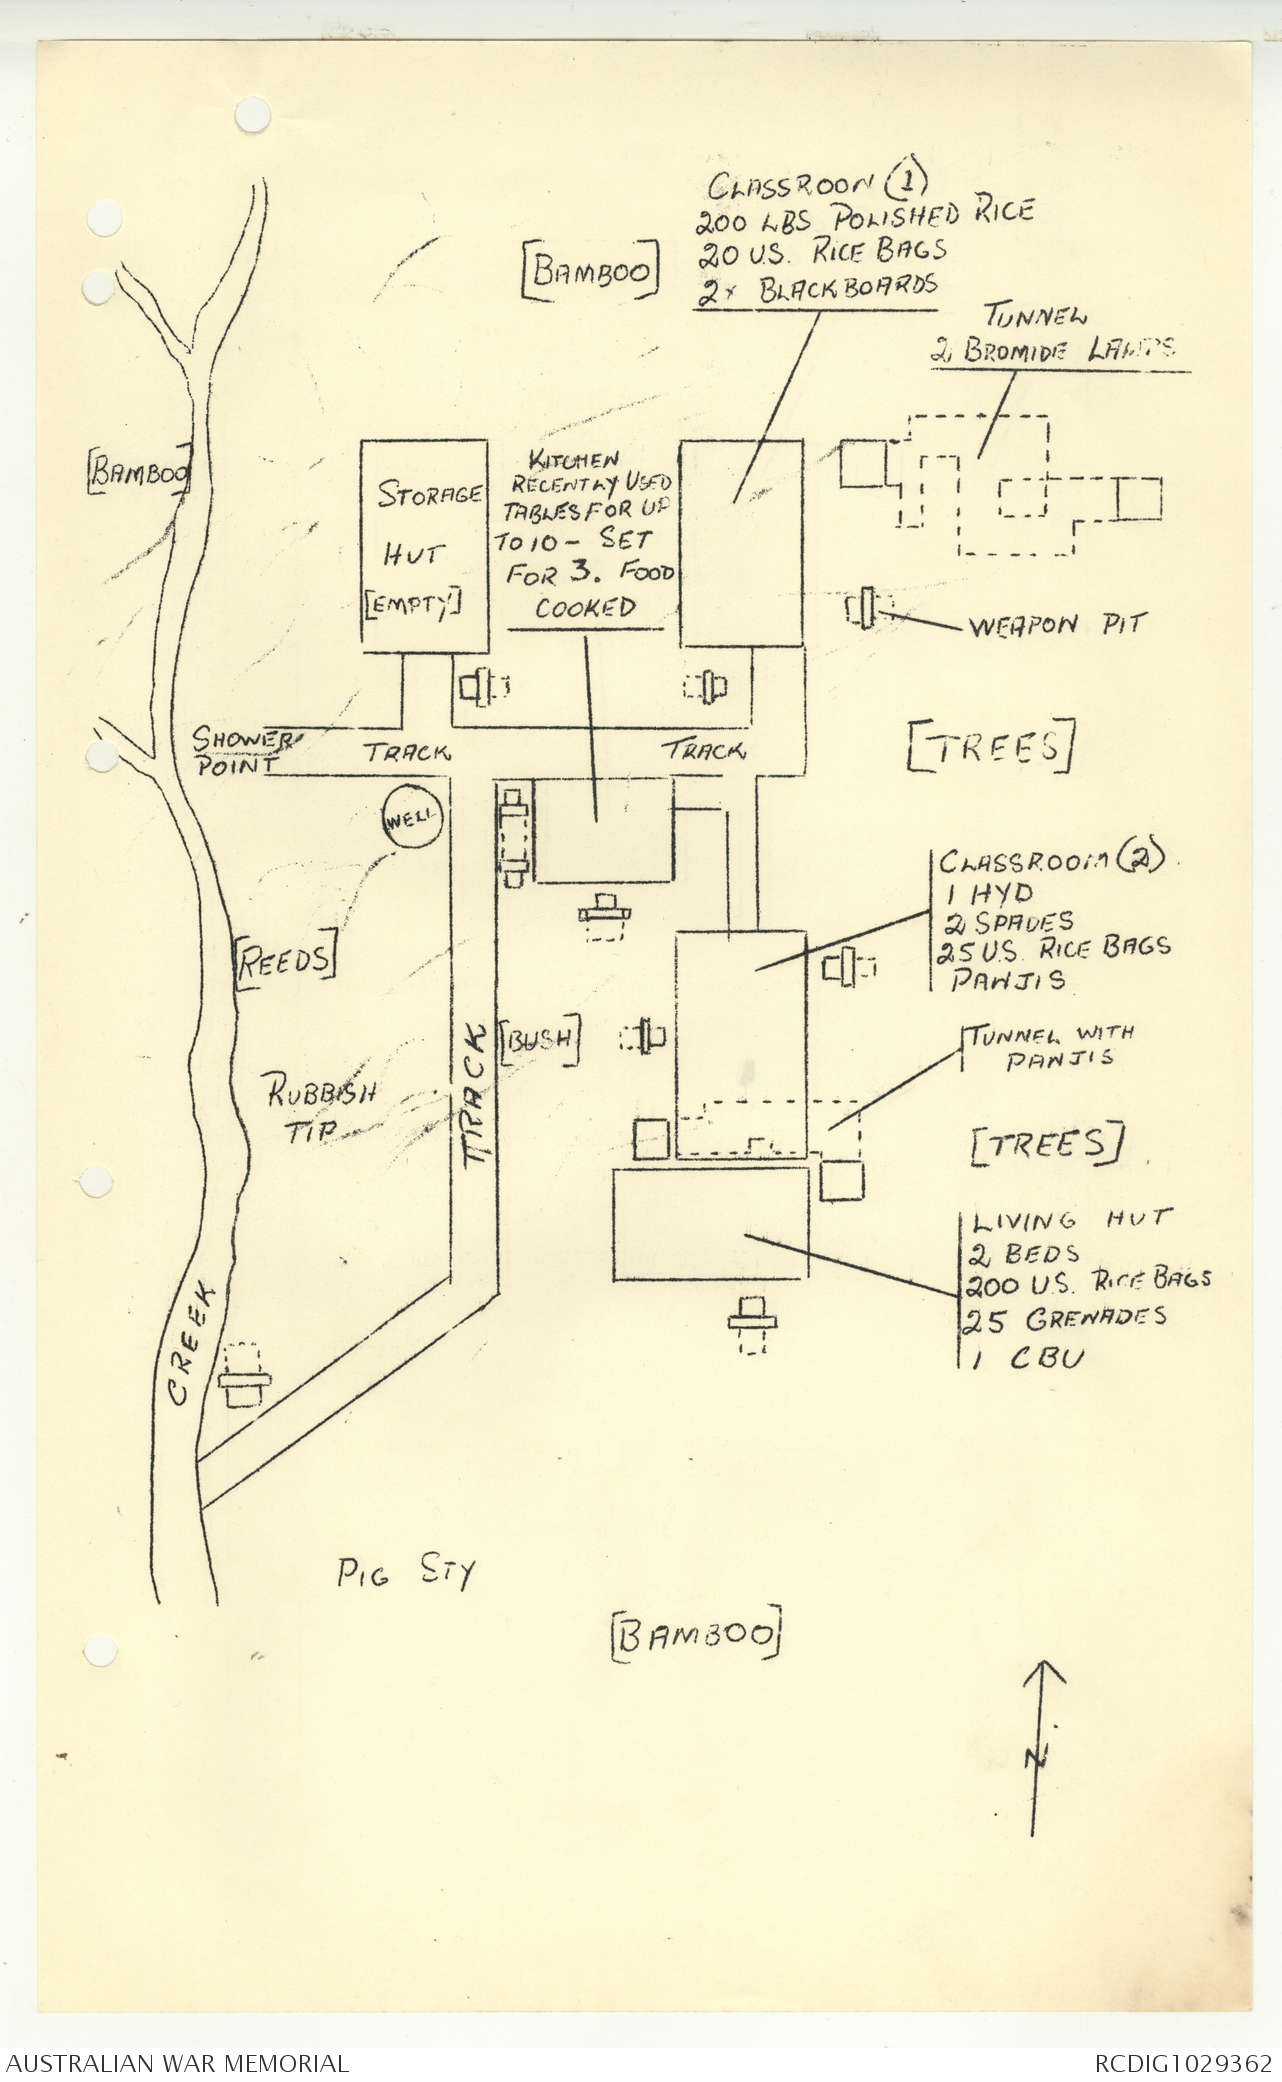 CLASSROON (1)
200 LBS POLISHED RICE
20 U.S. RICE BAGS
2x BLACKBOARDS
[BAMBOO]
TUNNEL
2 BROMIDE LAMPS
[BAMBOO]
STORAGE
HUT
[EMPTY]
KITCHEN
RECENTLY USED
TABLES FOR UP
TO 10 - SET
FOR 3. FOOD
COOKED
WEAPON PIT
SHOWER
POINT
TRACK
TRACK
[TREES]
WELL
CLASSROOM (2)
1 HYD
2 SPADES
25 U.S. RICE BAGS
PANJIS
[REEDS]
[BUSH]
TRACK
TUNNEL WITH
PANJIS
RUBBISH
TIP
[TREES]
LIVING HUT
2 BEDS
200 U.S. RICE BAGS
25 GRENADES
1 CBU
CREEK
PIG STY
[BAMBOO]
N
AUSTRALIAN WAR MEMORIAL
RCDIG1029362